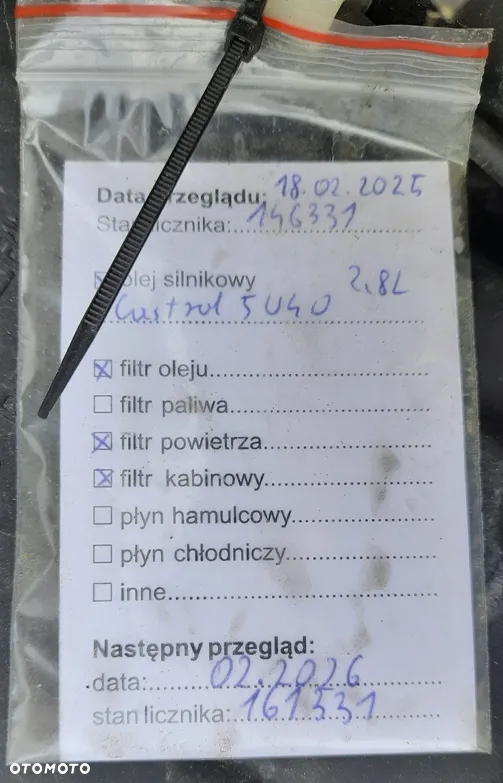 Data przeglądu: 18.02.2025
Stan licznika: 146331
olej silnikowy 2,8L
Castrol 5W40
filtr oleju
filtr paliwa
filtr powietrza
filtr kabinowy
płyn hamulcowy
płyn chłodniczy
inne
Następny przegląd:
data: 02.2026
stan licznika: 161331
OTOMOTO